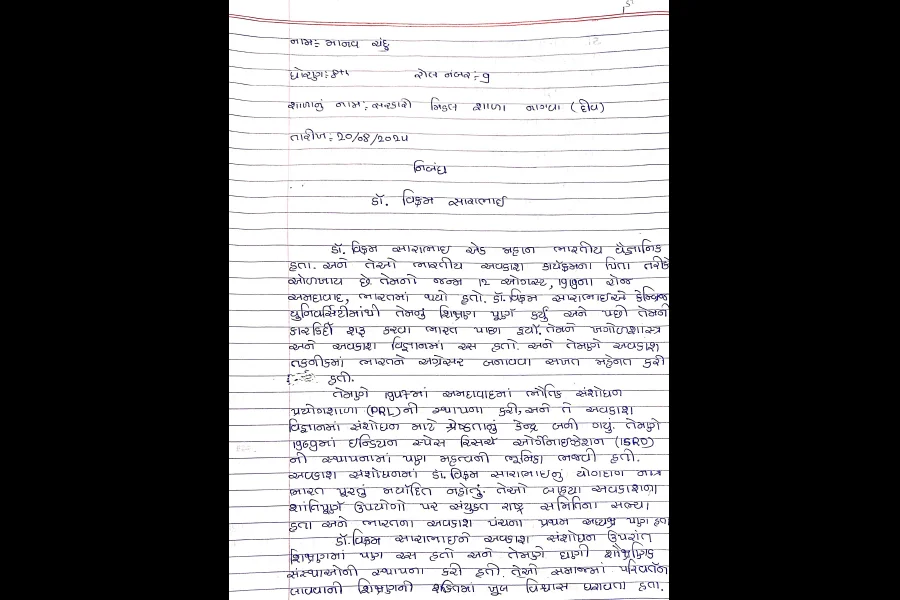 નામ:- માનવ ચંદુ
ધોરણ:- 8th રોલ નંબર:- 9
શાળાનું નામ:- સરકારી મિડલ શાળા નાગવા (દીવ)
તારીખ:- 20/08/2024
નિબંધ
ડૉ. વિક્રમ સારાભાઈ
ડૉ. વિક્રમ સારાભાઇ એક મહાન ભારતીય વૈજ્ઞાનિક
હતા. અને તેઓ ભારતીય અવકાશ કાર્યક્રમના પિતા તરીકે
ઓળખાય છે. તેમનો જન્મ 12 ઓગસ્ટ, 1919ના રોજ
અમદાવાદ, ભારતમાં થયો હતો. ડૉ. વિક્રમ સારાભાઇએ કેમ્બ્રિજ
યુનિવર્સિટીમાંથી તેમનું શિક્ષણ પૂર્ણ કર્યું અને પછી તેમની
કારકિર્દી શરૂ કરવા ભારત પાછા ફર્યા. તેમને ખગોળશાસ્ત્ર
અને અવકાશ વિજ્ઞાનમાં રસ હતો. અને તેમણે અવકાશ
તકનીકમાં ભારતને અગ્રેસર બનાવવા સખત મહેનત કરી
હતી.
તેમણે 1947માં અમદાવાદમાં ભૌતિક સંશોધન
પ્રયોગશાળા (PRL)ની સ્થાપના કરી, અને તે અવકાશ
વિજ્ઞાનમાં સંશોધન માટે શ્રેષ્ઠતાનું કેન્દ્ર બની ગયું. તેમણે
1969માં ઇન્ડિયન સ્પેસ રિસર્ચ ઓર્ગેનાઇઝેશન (ISRO)
ની સ્થાપનામાં પણ મહત્વની ભૂમિકા ભજવી હતી.
અવકાશ સંશોધનમાં ડૉ. વિક્રમ સારાભાઇનું યોગદાન માત્ર
ભારત પૂરતું મર્યાદિત નહોતું. તેઓ બાહ્ય અવકાશના
શાંતિપૂર્ણ ઉપયોગો પર સંયુક્ત રાષ્ટ્ર સમિતિના સભ્ય
હતા અને ભારતના અવકાશ પંચના પ્રથમ અધ્યક્ષ પણ હતા
ડૉ. વિક્રમ સારાભાઇને અવકાશ સંશોધન ઉપરાંત
શિક્ષણમાં પણ રસ હતો અને તેમણે ઘણી શૈક્ષણિક
સંસ્થાઓની સ્થાપના કરી હતી. તેઓ સમાજમાં પરિવર્તન
લાવવાની શિક્ષણની શક્તિમાં ખૂબ વિશ્વાસ ધરાવતા હતા.